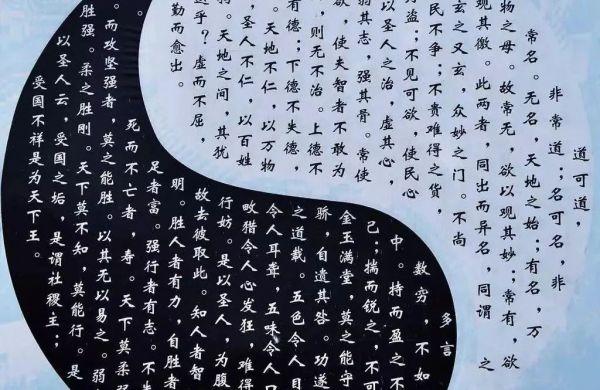 道可道，
非常道；名可名，非
常名。无名，天地之始；有名，万
物之母。故常无，欲以观其妙；常有，欲
观其徼。此两者，同出而异名，同谓 之
玄之又玄，众妙之门。不尚
民不争；不贵难得之货，
为盗；不见可欲，使民心
以圣人之治，虚其心，
弱其志，强其骨。常使
欲，使夫智者不敢为
，则无不治。上德不
有德；下德不失德，
。天地不仁，以万物
圣人不仁，以百姓
狗。天地之间，其犹
乎？虚而不屈，
勤而愈出。
多言
数穷，不如
中。持而盈之不
己；揣而锐之，不可
金玉满堂，莫之能守
骄，自遗其咎。功遂
之道哉。五色令人目
令人耳聋，五味令人口
畋猎令人心发狂，难得
行妨。是以圣人，为腹
故去彼取此。知人者智
明。胜人者有力，自胜者
足者富。强行者有志。不失
死而不亡者，寿。天下莫柔弱
。而攻坚强者，莫之能胜。以其无以易之。弱
胜强。柔之胜刚。天下莫不知，莫能行。是
以圣人云，受国之垢，是谓社稷主；
受国不祥是为天下王。